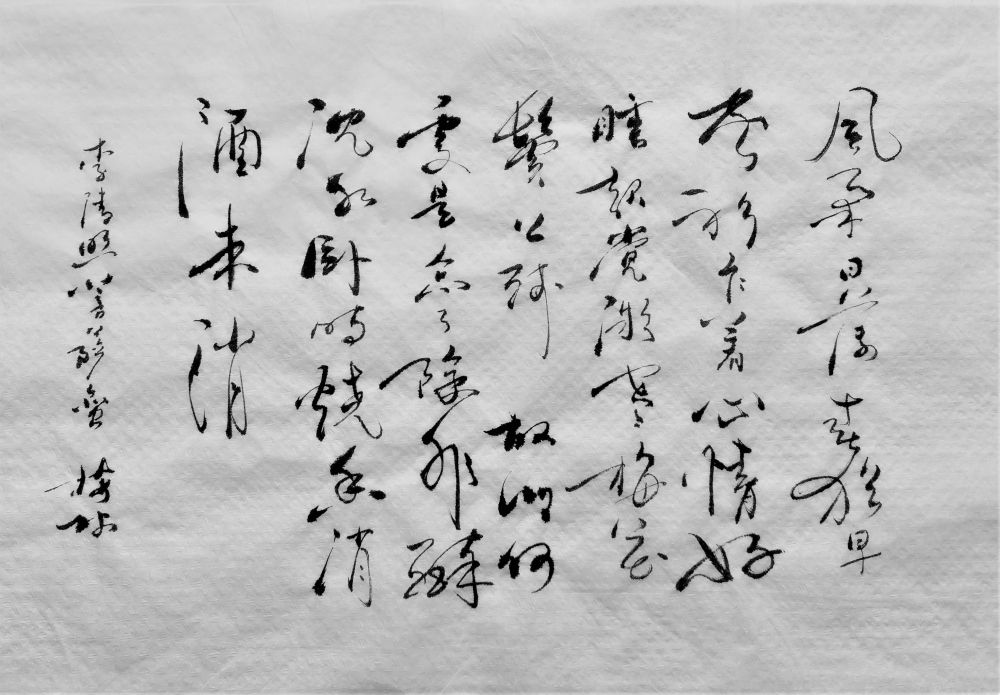 風柔日薄春猶早
夾衫乍着心情好
睡起覺微寒梅花
鬢上殘 故鄉何
處是忘了除非醉
沈水卧時燒香消
酒未消
李清照菩薩蠻